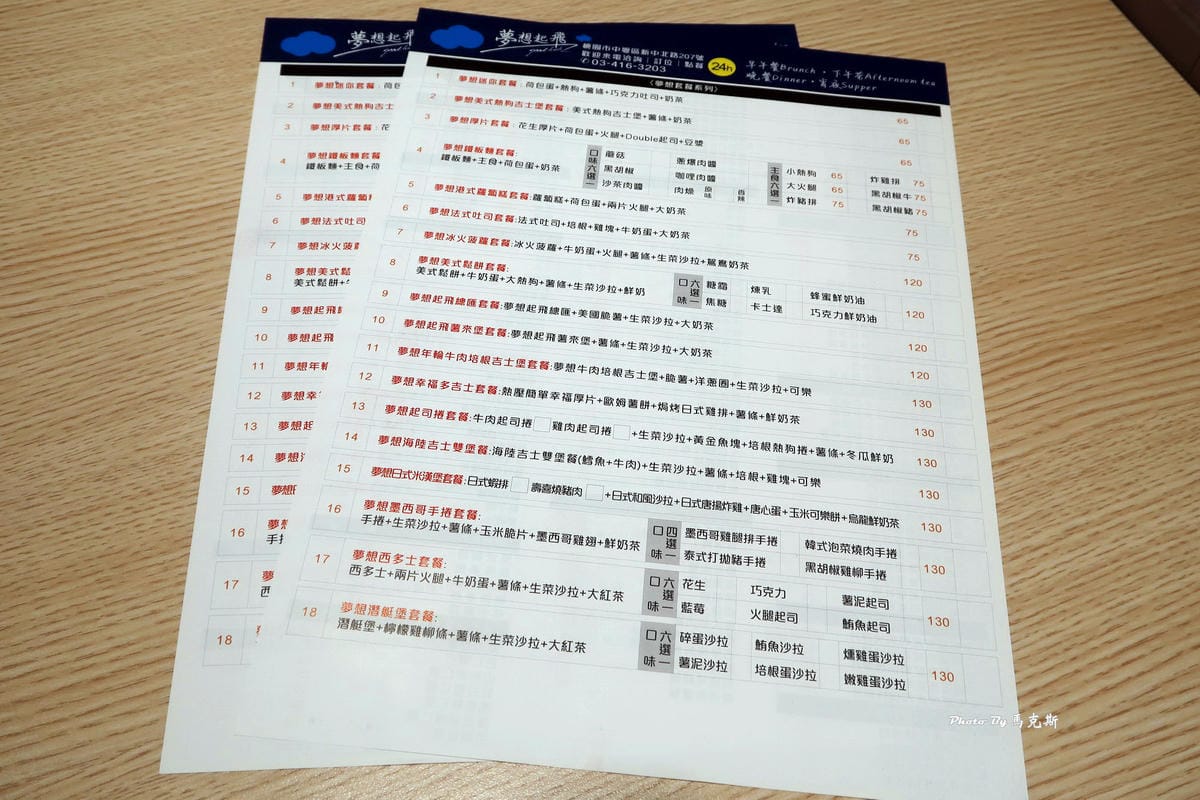 夢想起飛
夢想起飛
桃園市中壢區新中北路207號
歡迎來電洽詢│訂位│點餐
03-416-3203
24h
早午餐Brunch・下午茶Afternoom tea
晚餐Dinner・宵夜Supper
〈夢想套餐系列〉
1 夢想迷你套餐:荷包蛋+熱狗+薯條+巧克力吐司+奶茶 65
2 夢想美式熱狗吉士堡套餐:美式熱狗吉士堡+薯條+奶茶 65
3 夢想厚片套餐:花生厚片+荷包蛋+火腿+Double起司+豆漿 65
4 夢想鐵板麵套餐:
鐵板麵+主食+荷包蛋+奶茶
口味六選一
蘑菇 蔥爆肉醬
黑胡椒 咖哩肉醬
沙茶肉醬 肉燥 原味 香辣
主食六選一
小熱狗 65 炸雞排 75
大火腿 65 黑胡椒牛 75
炸豬排 75 黑胡椒豬 75
5 夢想港式蘿蔔糕套餐:蘿蔔糕+荷包蛋+兩片火腿+大奶茶 75
6 夢想法式吐司套餐:法式吐司+培根+雞塊+牛奶蛋+大奶茶 75
7 夢想冰火菠蘿套餐:冰火菠蘿+牛奶蛋+火腿+薯條+生菜沙拉+鴛鴦奶茶 120
8 夢想美式鬆餅套餐:
美式鬆餅+牛奶蛋+大熱狗+薯條+生菜沙拉+鮮奶
口味六選一
糖霜 煉乳 蜂蜜鮮奶油
焦糖 卡士達 巧克力鮮奶油
120
9 夢想起飛總匯套餐:夢想起飛總匯+美國脆薯+生菜沙拉+大奶茶 120
10 夢想起飛薯來堡套餐:夢想起飛薯來堡+薯條+生菜沙拉+大奶茶 120
11 夢想年輪牛肉培根吉士堡套餐:夢想牛肉培根吉士堡+脆薯+洋蔥圈+生菜沙拉+可樂 130
12 夢想幸福多吉士套餐:熱壓簡單幸福厚片+歐姆薯餅+焗烤日式雞排+薯條+鮮奶茶 130
13 夢想起司捲套餐:牛肉起司捲□ 雞肉起司捲□+生菜沙拉+黃金魚塊+培根熱狗捲+薯條+冬瓜鮮奶 130
14 夢想海陸吉士雙堡套餐:海陸吉士雙堡套餐(鱈魚+牛肉)+生菜沙拉+薯條+培根+雞塊+可樂 130
15 夢想日式米漢堡套餐:日式蝦排□ 壽喜燒豬肉□+日式和風沙拉+日式唐揚炸雞+唐心蛋+玉米可樂餅+烏龍鮮奶茶 130
16 夢想墨西哥手捲套餐:
手捲+生菜沙拉+薯條+玉米脆片+墨西哥雞翅+鮮奶茶
口味四選一
墨西哥雞腿排手捲 韓式泡菜燒肉手捲
泰式打拋豬手捲 黑胡椒雞柳手捲
130
17 夢想西多士套餐:
西多士+兩片火腿+牛奶蛋+薯條+生菜沙拉+大紅茶
口味六選一
花生 巧克力 薯泥起司
藍莓 火腿起司 鮪魚起司
130
18 夢想潛艇堡套餐:
潛艇堡+檸檬雞柳條+薯條+生菜沙拉+大紅茶
口味六選一
碎蛋沙拉 鮪魚沙拉 燻雞蛋沙拉
薯泥沙拉 培根蛋沙拉 嫩雞蛋沙拉
130
Photo By 馬克斯